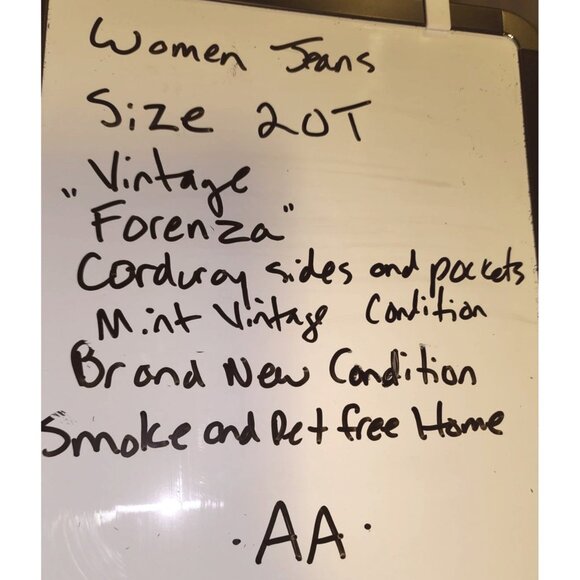 Women Jeans
Size 20T
"Vintage
Forenza"
Corduroy sides and pockets
Mint Vintage Condition
Brand New Condition
Smoke and Pet free Home
·AA·